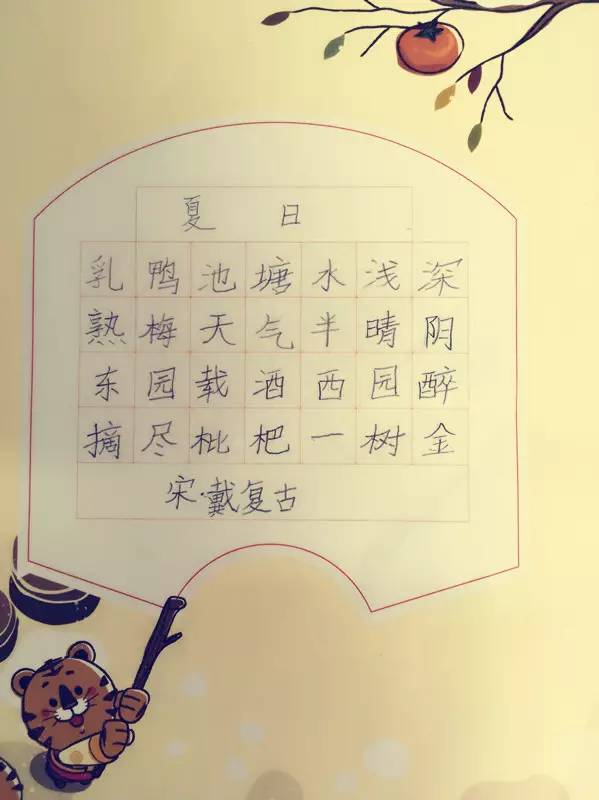 夏日
乳鸭池塘水浅深
熟梅天气半晴阴
东园载酒西园醉
摘尽枇杷一树金
宋·戴复古